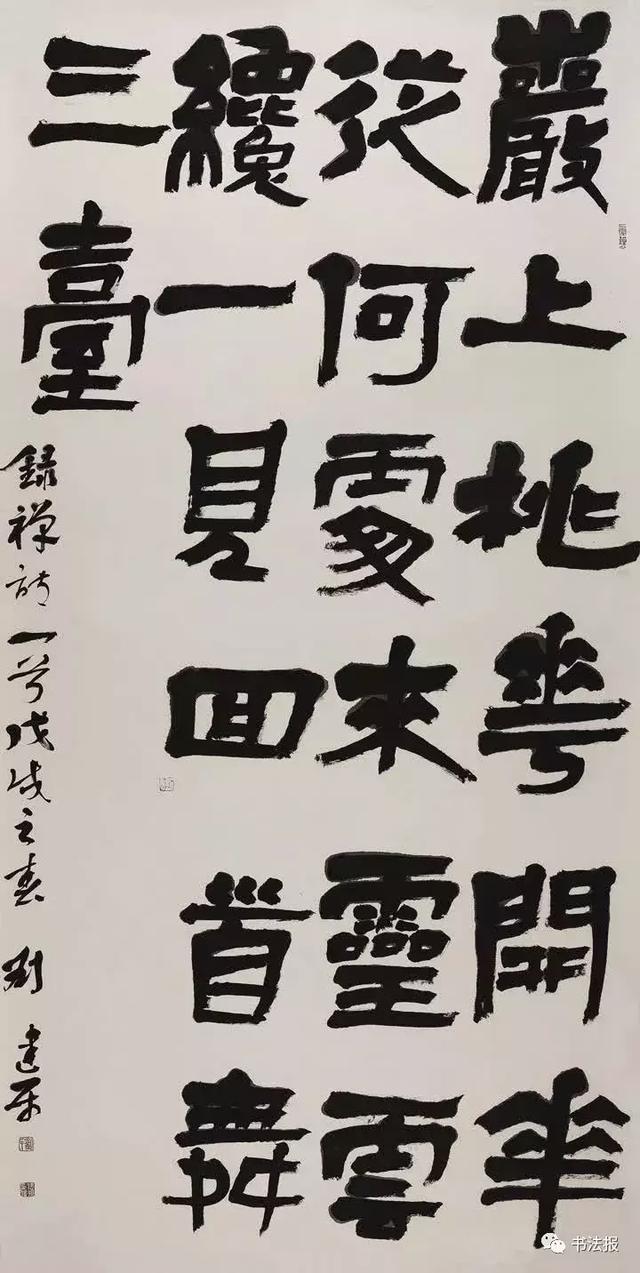 巖上桃華開華
從何處來靈雲
纔一見回首舞
三臺
錄禅詩一首戊戌之春 刘建平
书法报